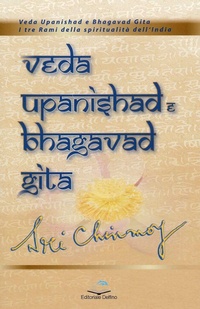 Veda Upanishad e Bhagavad Gita
I tre Rami della spiritualità dell'India
veda
upanishad e
bhagavad
gita
Sri Chinmoy
Editoriale Delfino